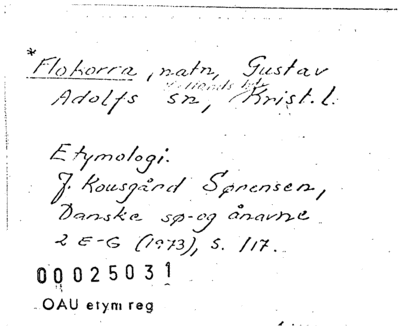 *Flokorra, natn, Gustav
Adolfs sn, Krist. l.
Etymologi.
J. Kousgård Sørensen,
Danske sø- og ånavne
2 E-G (1973), s. 117.
00025031
OAU etym reg